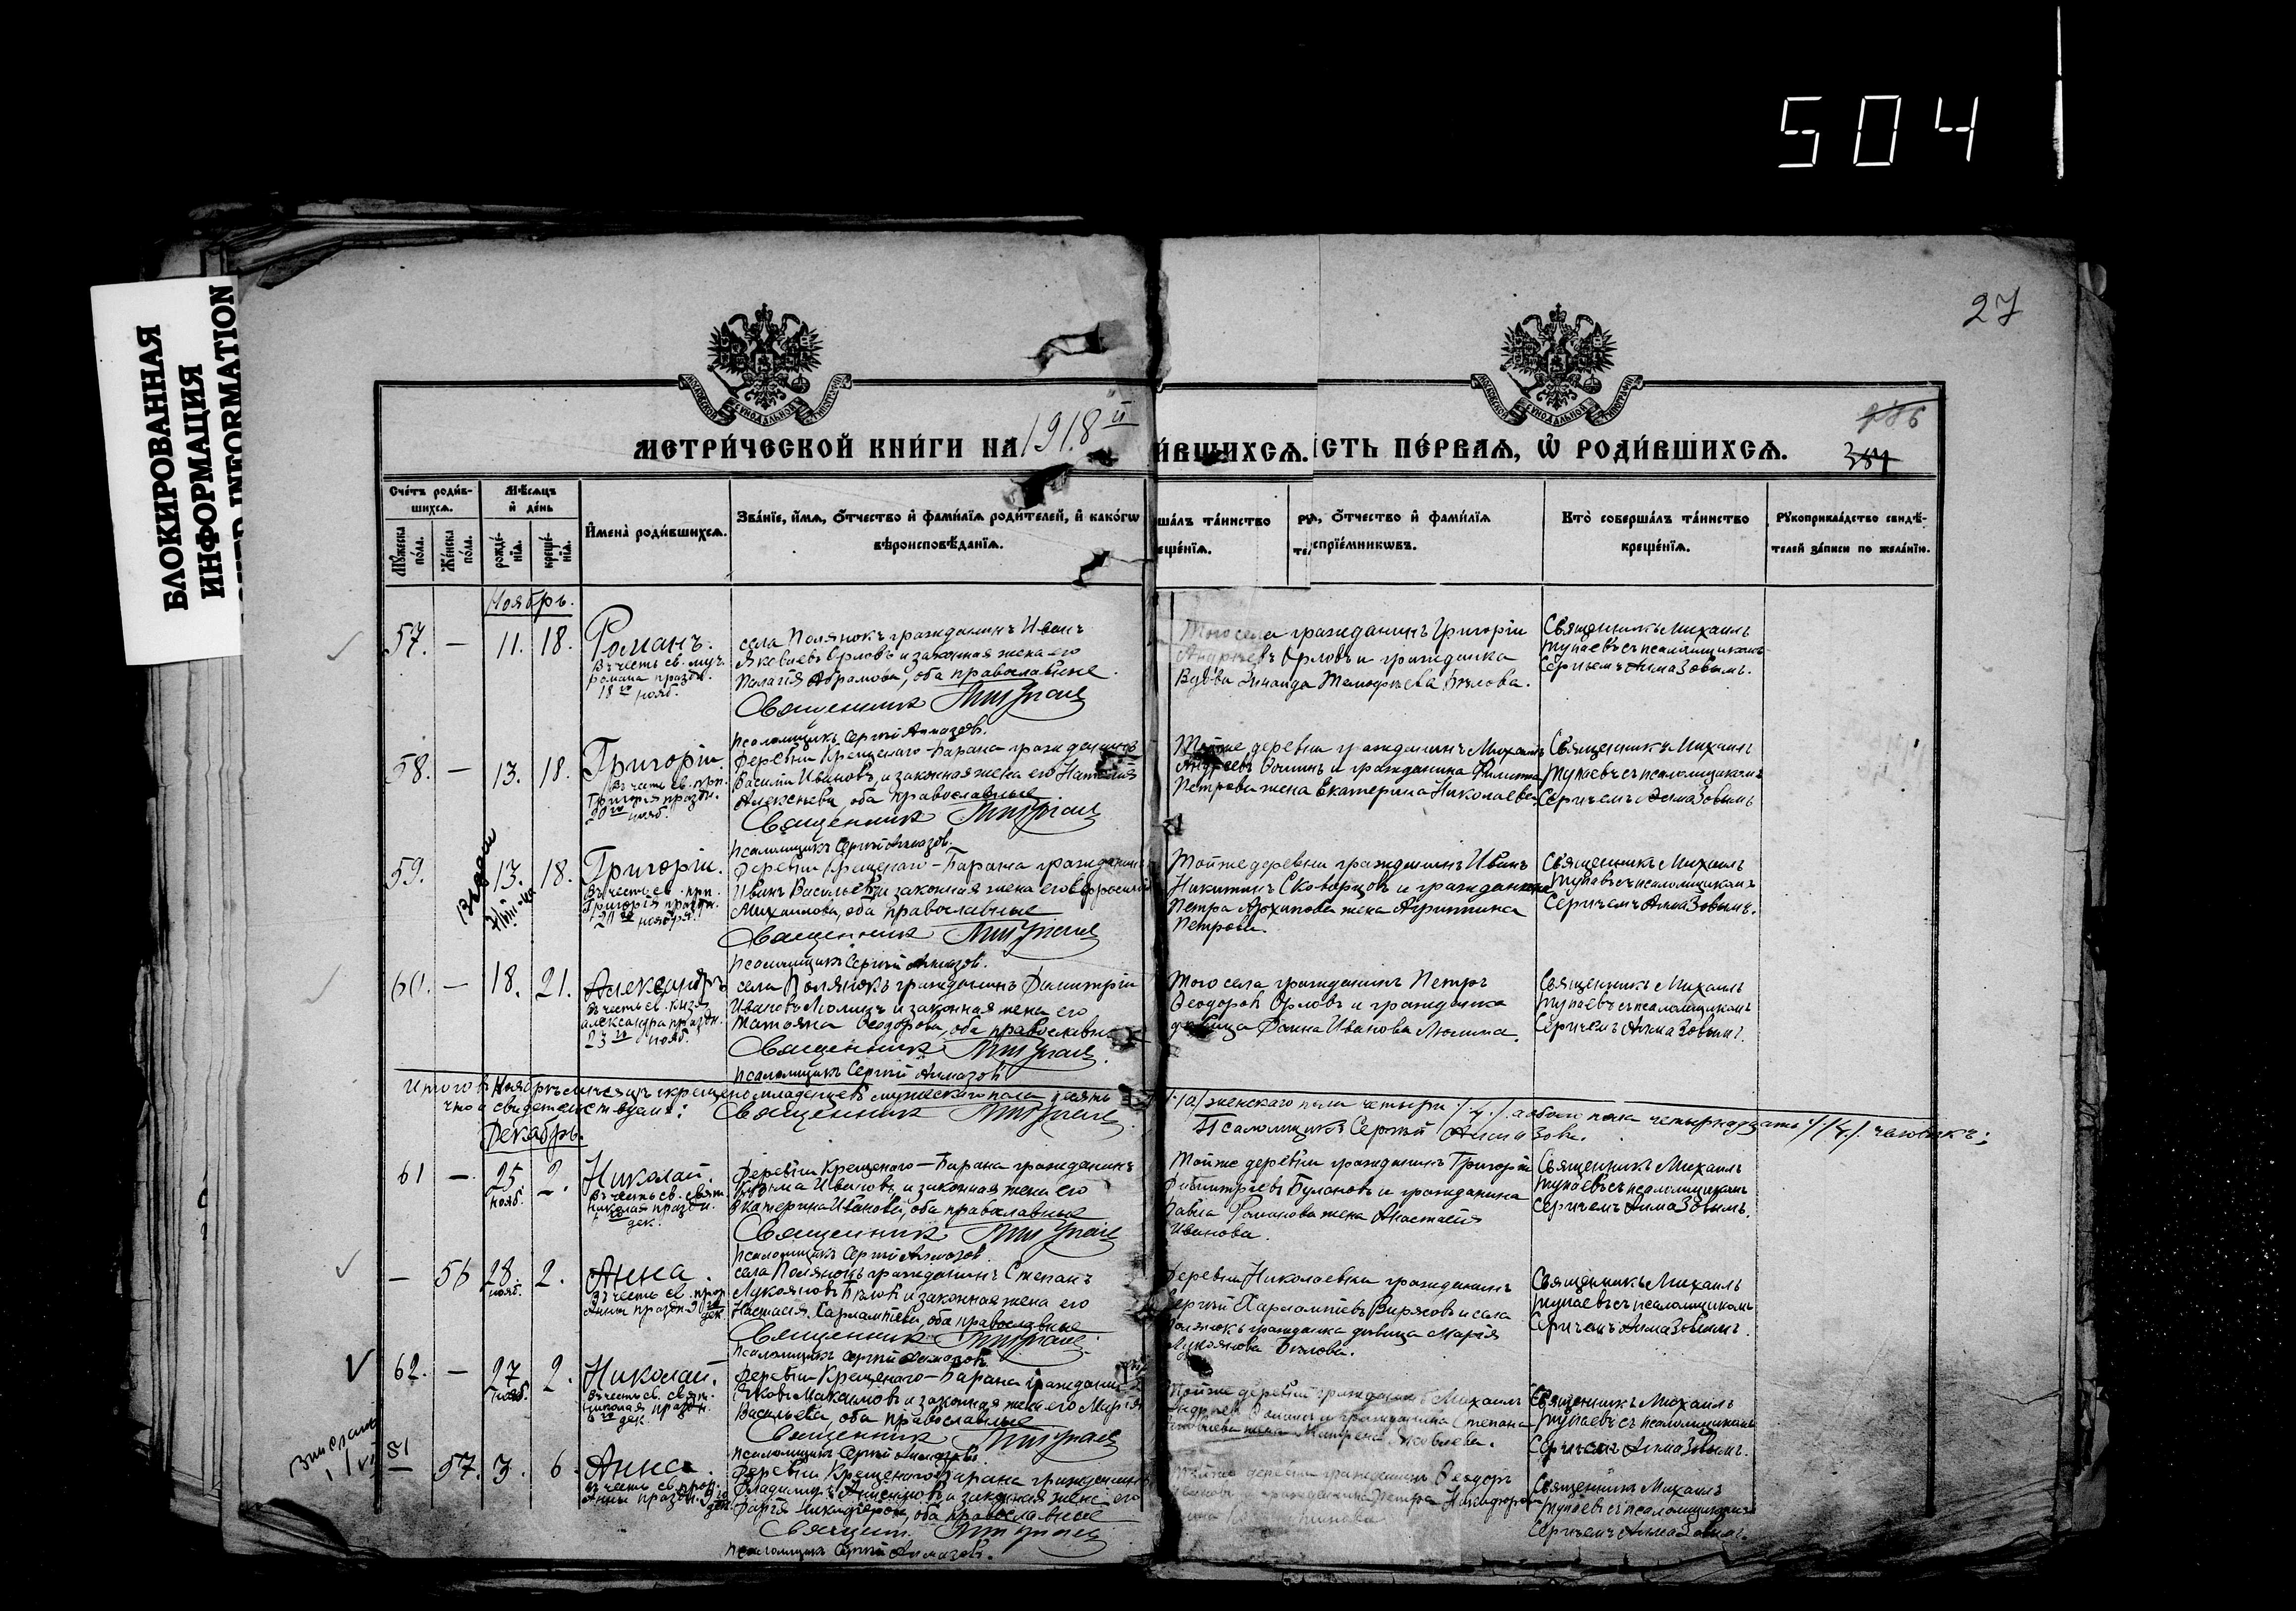 504
27
БЛОКИРОВАННАЯ
ИНФОРМАЦИЯ
INFORMATION
МЕТРИ́ЧЕСКОЙ КНИ́ГИ НА 1918 й
И́ВШИХСѦ.
СТЬ ПЕ́РВАѦ, Ѿ РОДИ́ВШИХСѦ.
384
Сче́тъ роди́в-
шихсѧ.
Мѣсѧцъ
и҆ де́нь
Мꙋ́жеска
пола.
Же́нска
по́ла.
рожде́-
нїѧ.
креще́-
нїѧ.
И҆мена̀ роди́вшихсѧ.
Зва́нїе, и҆́мѧ, о҆́тчество и҆ фами́лїѧ роди́телей, и҆ како́гѡ
вѣроисповѣ́данїѧ.
ша́лъ та́инство
еще́нїѧ.
о҆́тчество и҆ фами́лїѧ
спрїе́мникѡвъ.
Кто̀ соверша́лъ та́инство
креще́нїѧ.
Рꙋкоприкла́дство свидѣ́-
телей за́писи по жела́нїю.
Ноябрь.
57. — 11. 18. Романъ.
Въ честь св. муч.
романа праздн.
18 го нояб.
села Полянокъ гражданинъ Иванъ
Яковлевъ Орловъ и законная жена его
Палагія Абрамова, оба православные
Священник
Псаломщикъ Сергій Алмазовъ.
Того села гражданинъ Григорій
Андреевъ Орловъ и гражданка
Вдова Зинаида Тимофеева Белова.
Священникъ Михаилъ
Тупаевъ съ псаломщикомъ
Сергіемъ Алмазовымъ.
58. — 13. 18. Григорій.
Въ честь св. прп.
Григорія праздн.
20 го нояб.
Деревни Крещенаго-Барана гражданинъ
Василій Ивановъ, и законная жена его Наталія
Алексеева, оба православные
Священник
Псаломщикъ Сергій Алмазовъ.
Тойже деревни гражданинъ Михаилъ
Андреевъ Фоминъ и гражданина Филиппа
Петрова жена Екатерина Николаева
Священникъ Михаилъ
Тупаевъ съ псаломщикомъ
Сергіемъ Алмазовымъ
59. 13. 18. Григорій.
Выдан
Въ честь св. прп.
Григорія праздн.
20 го ноября.
Деревни Крещенаго-Барана гражданинъ
Иванъ Васильевъ и законная жена его Ефросинія
Михаилова, оба православные
Священник
Псаломщикъ Сергій Алмазов.
Тойже деревни гражданинъ Иванъ
Никитинъ Скворцовъ и гражданина
Петра Архипова жена Агриппина
Петрова.
Священникъ Михаилъ
Тупаевъ съ псаломщикомъ
Сергіемъ Алмазовымъ.
60. — 18. 21. Александръ
Въ честь св. князя
Александра праздн.
23 го нояб.
села Полянокъ гражданинъ Димитрій
Ивановъ Молинъ и законная жена его
Татьяна Ѳеодорова, оба православные
Священник
Псаломщикъ Сергій Алмазовъ
Того села гражданинъ Петръ
Ѳеодоровъ Орловъ и гражданка
девица Ивановa
Священникъ Михаилъ
Тупаевъ съ псаломщикомъ
Сергіемъ Алмазовымъ.
Итого в Ноябре месяце крещено младенцев мужескаго пола десять /10/ женскаго пола четыри /4/. а обоего пола четырнадцать /14/. человекъ;
что и свидетельствуем: Священник Псаломщикъ Сергій Алмазовъ.
Декабрь.
61 — 25 нояб. 2. Николай.
Въ честь св. свят.
Николая праздн.
дек.
Деревни Крещенаго-Барана гражданинъ
Кузьма Ивановъ, и законная жена его
Екатерина Иванова, оба православные
Священник
Псаломщикъ Сергій Алмазов
Тойже деревни гражданинъ Григорій
Димитріевъ Булановъ и гражданина
Павла Романова жена Анастасія
Иванова.
Священникъ Михаилъ
Тупаевъ съ псаломщикомъ
Сергіемъ Алмазовымъ.
— 56 28. нояб. 2. Анна.
Въ честь св. прор.
Анны праздн. 9 го дек.
села Полянокъ гражданинъ Степанъ
Лукояновъ Беловъ и законная жена его
Настасія Харлампіева, оба православные
Священник
Псаломщикъ Сергій Алмазовъ.
Деревни Николаевки гражданинъ
Сергій Харлампіевъ Вирясовъ и села
Полянокъ гражданка девица Марія
Лукоянова Белова.
Священникъ Михаилъ
Тупаевъ съ псаломщикомъ
Сергіемъ Алмазовымъ.
62. — 27 нояб. 2. Николай.
Въ честь св. свят.
Николая праздн.
6 го дек.
Деревни Крещенаго-Барана гражданинъ
Яковъ Максимовъ и законная жена его Марія
Васильева, оба православные
Священник
Псаломщикъ Сергій Алмазовъ.
Тойже деревни гражданинъ Михаилъ
Андреев Фоминъ и гражданина Степана
жена Матрена Яковлева.
Священникъ Михаилъ
Тупаевъ съ псаломщикомъ
Сергіемъ Алмазовымъ.
— 57. 3. 6. Анна.
Въ честь св. прор.
Анны праздн. 9 го дек.
Деревни Крещенаго-Барана гражданинъ
Владимиръ и законная жена его
Дарія Никифорова, оба православные
Священ.
Псаломщикъ Сергій Алмазовъ.
Тойже деревни гражданинъ Ѳеодоръ
гражданина Петра Никифорова
Священникъ Михаилъ
Тупаевъ съ псаломщикомъ
Сергіемъ Алмазовымъ.